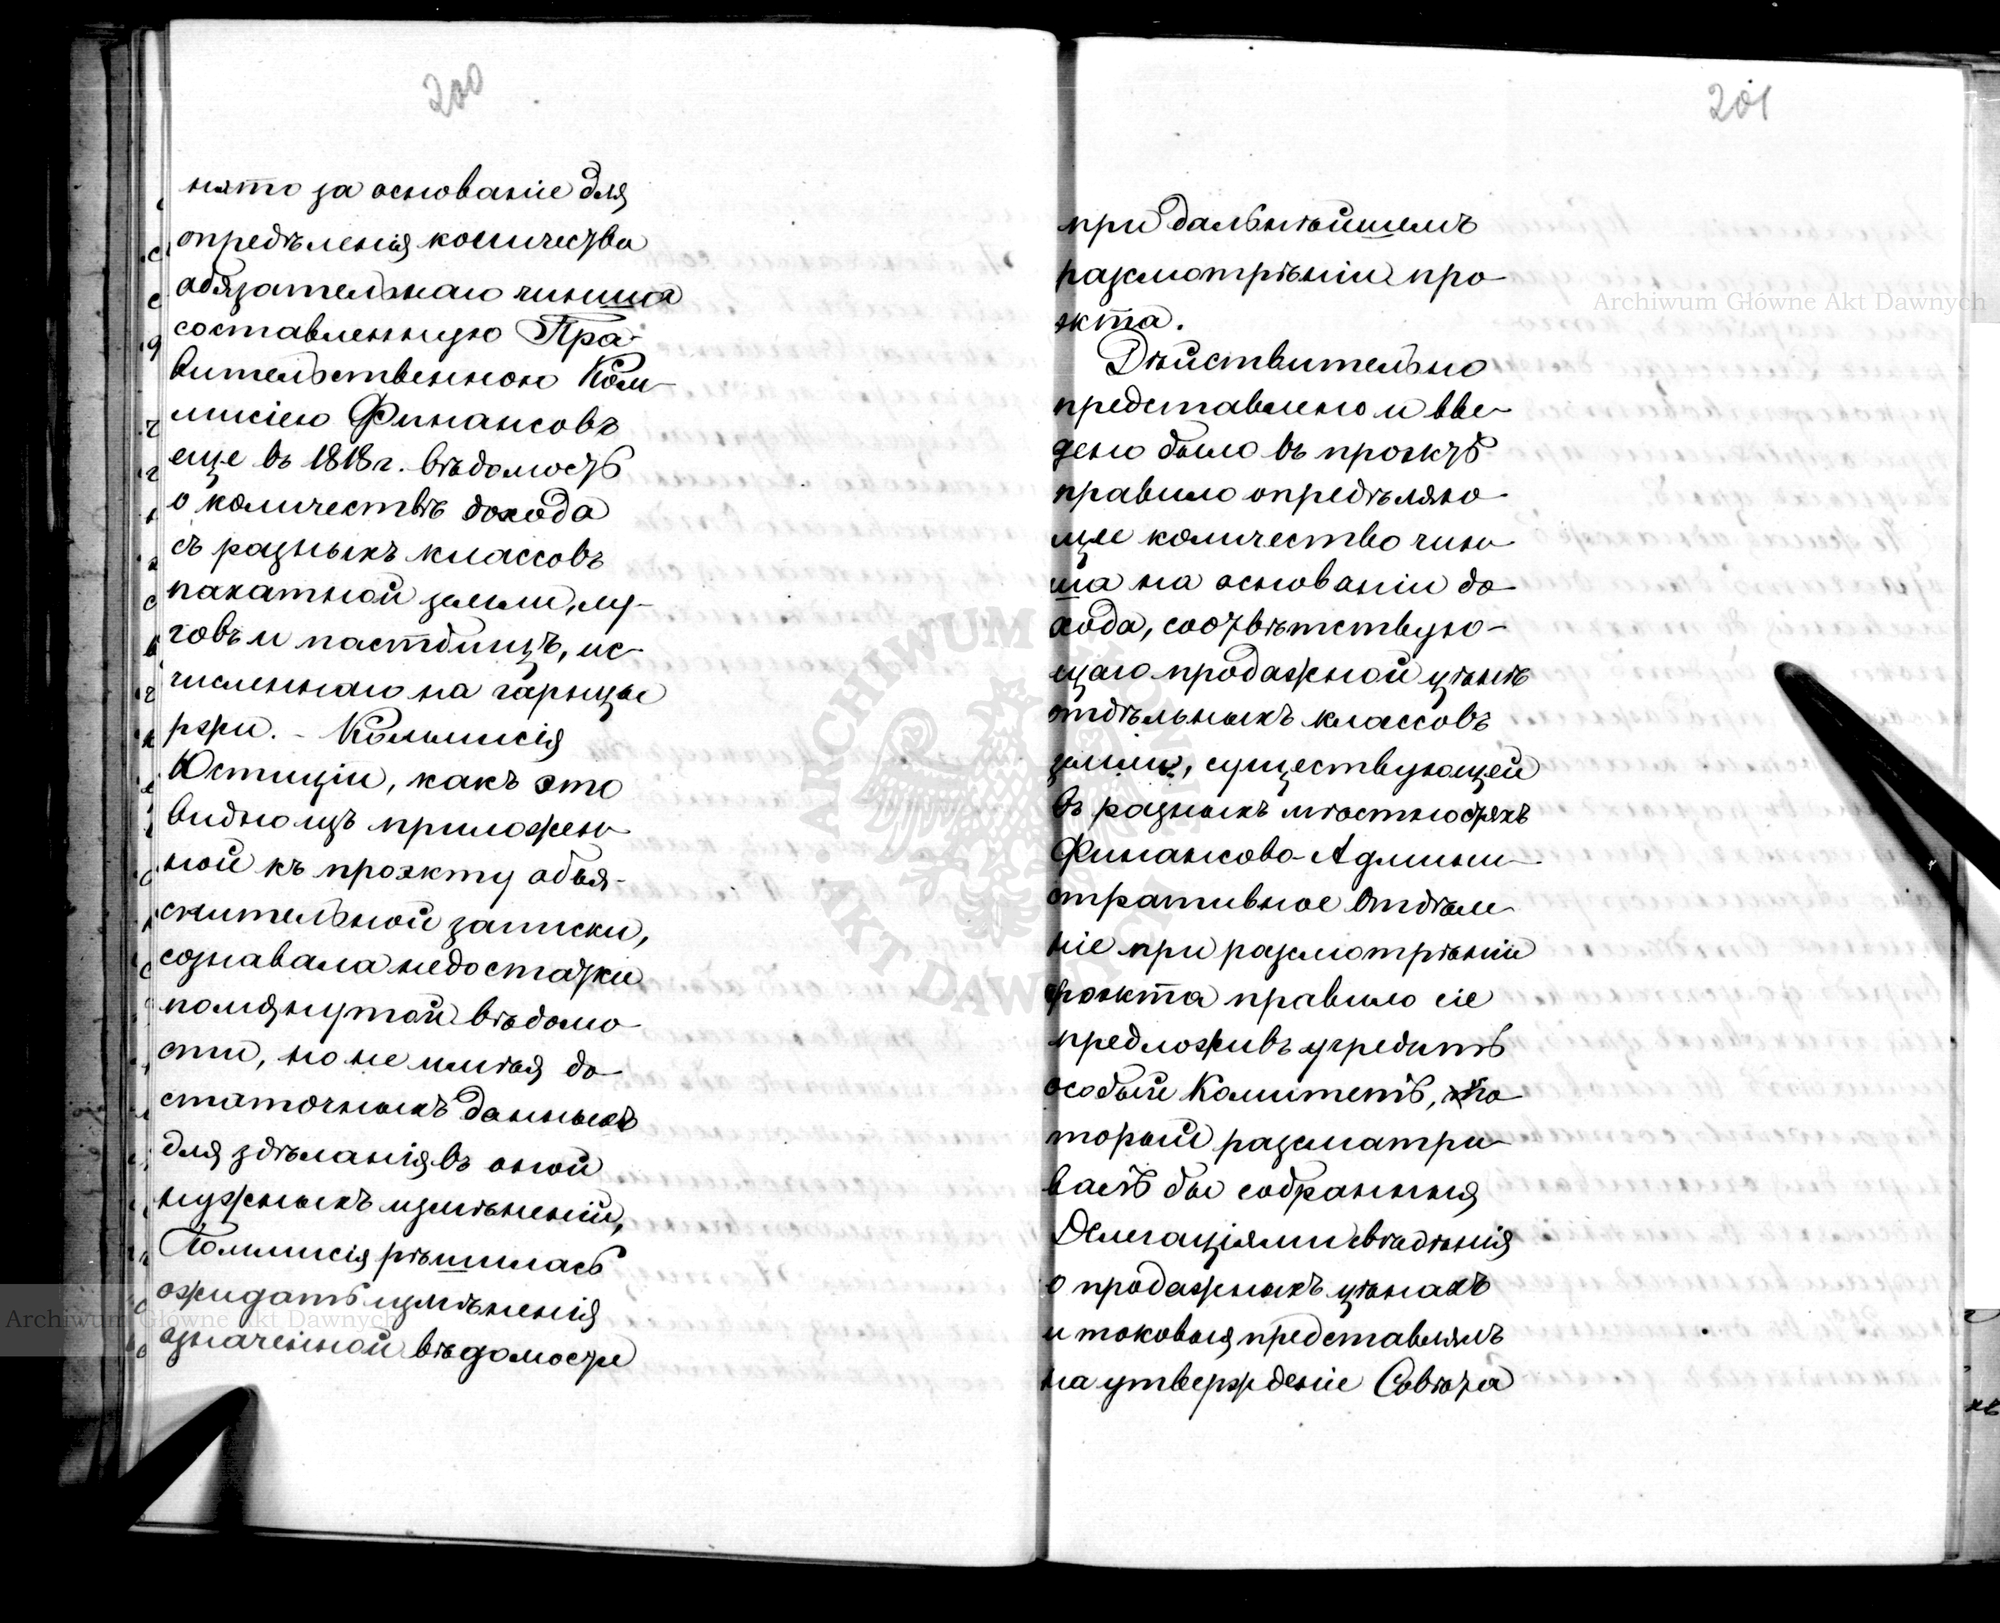 200
нято за основаніе для
опредѣленія количества
обязательнаго чинша
составленную Пра-
вительственною Ком-
мисіею Финансовъ
еще въ 1818 г. вѣдомость
о количествѣ дохода
съ разныхъ классовъ
пахатной земли, лу-
говъ и пастбищъ, ис-
численнаго на гарнцы
ржи. - Коммисія
Юстиціи, какъ это
видно изъ приложен-
ной къ проэкту объя-
снительной записки,
сознавала недостатки
помянутой вѣдомо-
сти, но не имѣя до-
статочныхъ данныхъ
для здѣланія въ оной
нужныхъ измѣненій,
Коммисія рѣшилась
ожидать измѣненія
означенной вѣдомости
201
при дальнѣйшемъ
разсмотрѣніи про-
экта.
Дѣйствительно
представлено и вве-
дено было въ проэктѣ
правило опредѣляю-
щее количество чин-
ша на основаніи до-
хода, соотвѣтствую-
щаго продажной цѣнѣ
отдѣльныхъ классовъ
земли, существующей
въ разныхъ мѣстностяхъ
Финансово-Админи-
стративное Отдѣле-
ніе при разсмотрѣніи
проэкта правило сіе
предложивъ учредить
особый Комитетъ, ко-
торый разсматри-
валъ бы собранныя
Делегаціями свѣдѣнія
о продажныхъ цѣнахъ
и таковыя представлялъ
на утвержденіе Совѣта
Archiwum Główne Akt Dawnych
Archiwum Główne Akt Dawnych
ARCHIWUM GŁÓWNE AKT DAWNYCH